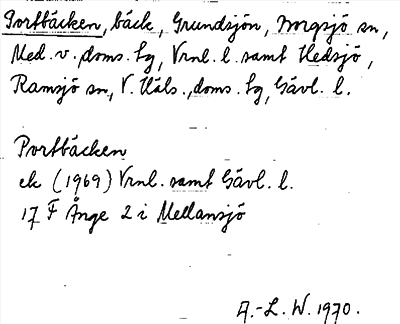 Portbäcken, bäck, Grundsjön, Borgsjö sn,
Med. v., doms. tg, Vrnl. l. samt Hedsjö,
Ramsjö sn, V. Häls., doms. tg, Gävl. l.
Portbäcken
ek (1969) Vrnl. samt Gävl. l.
17 F Ånge 2 i Mellansjö
A.-L. W. 1970.